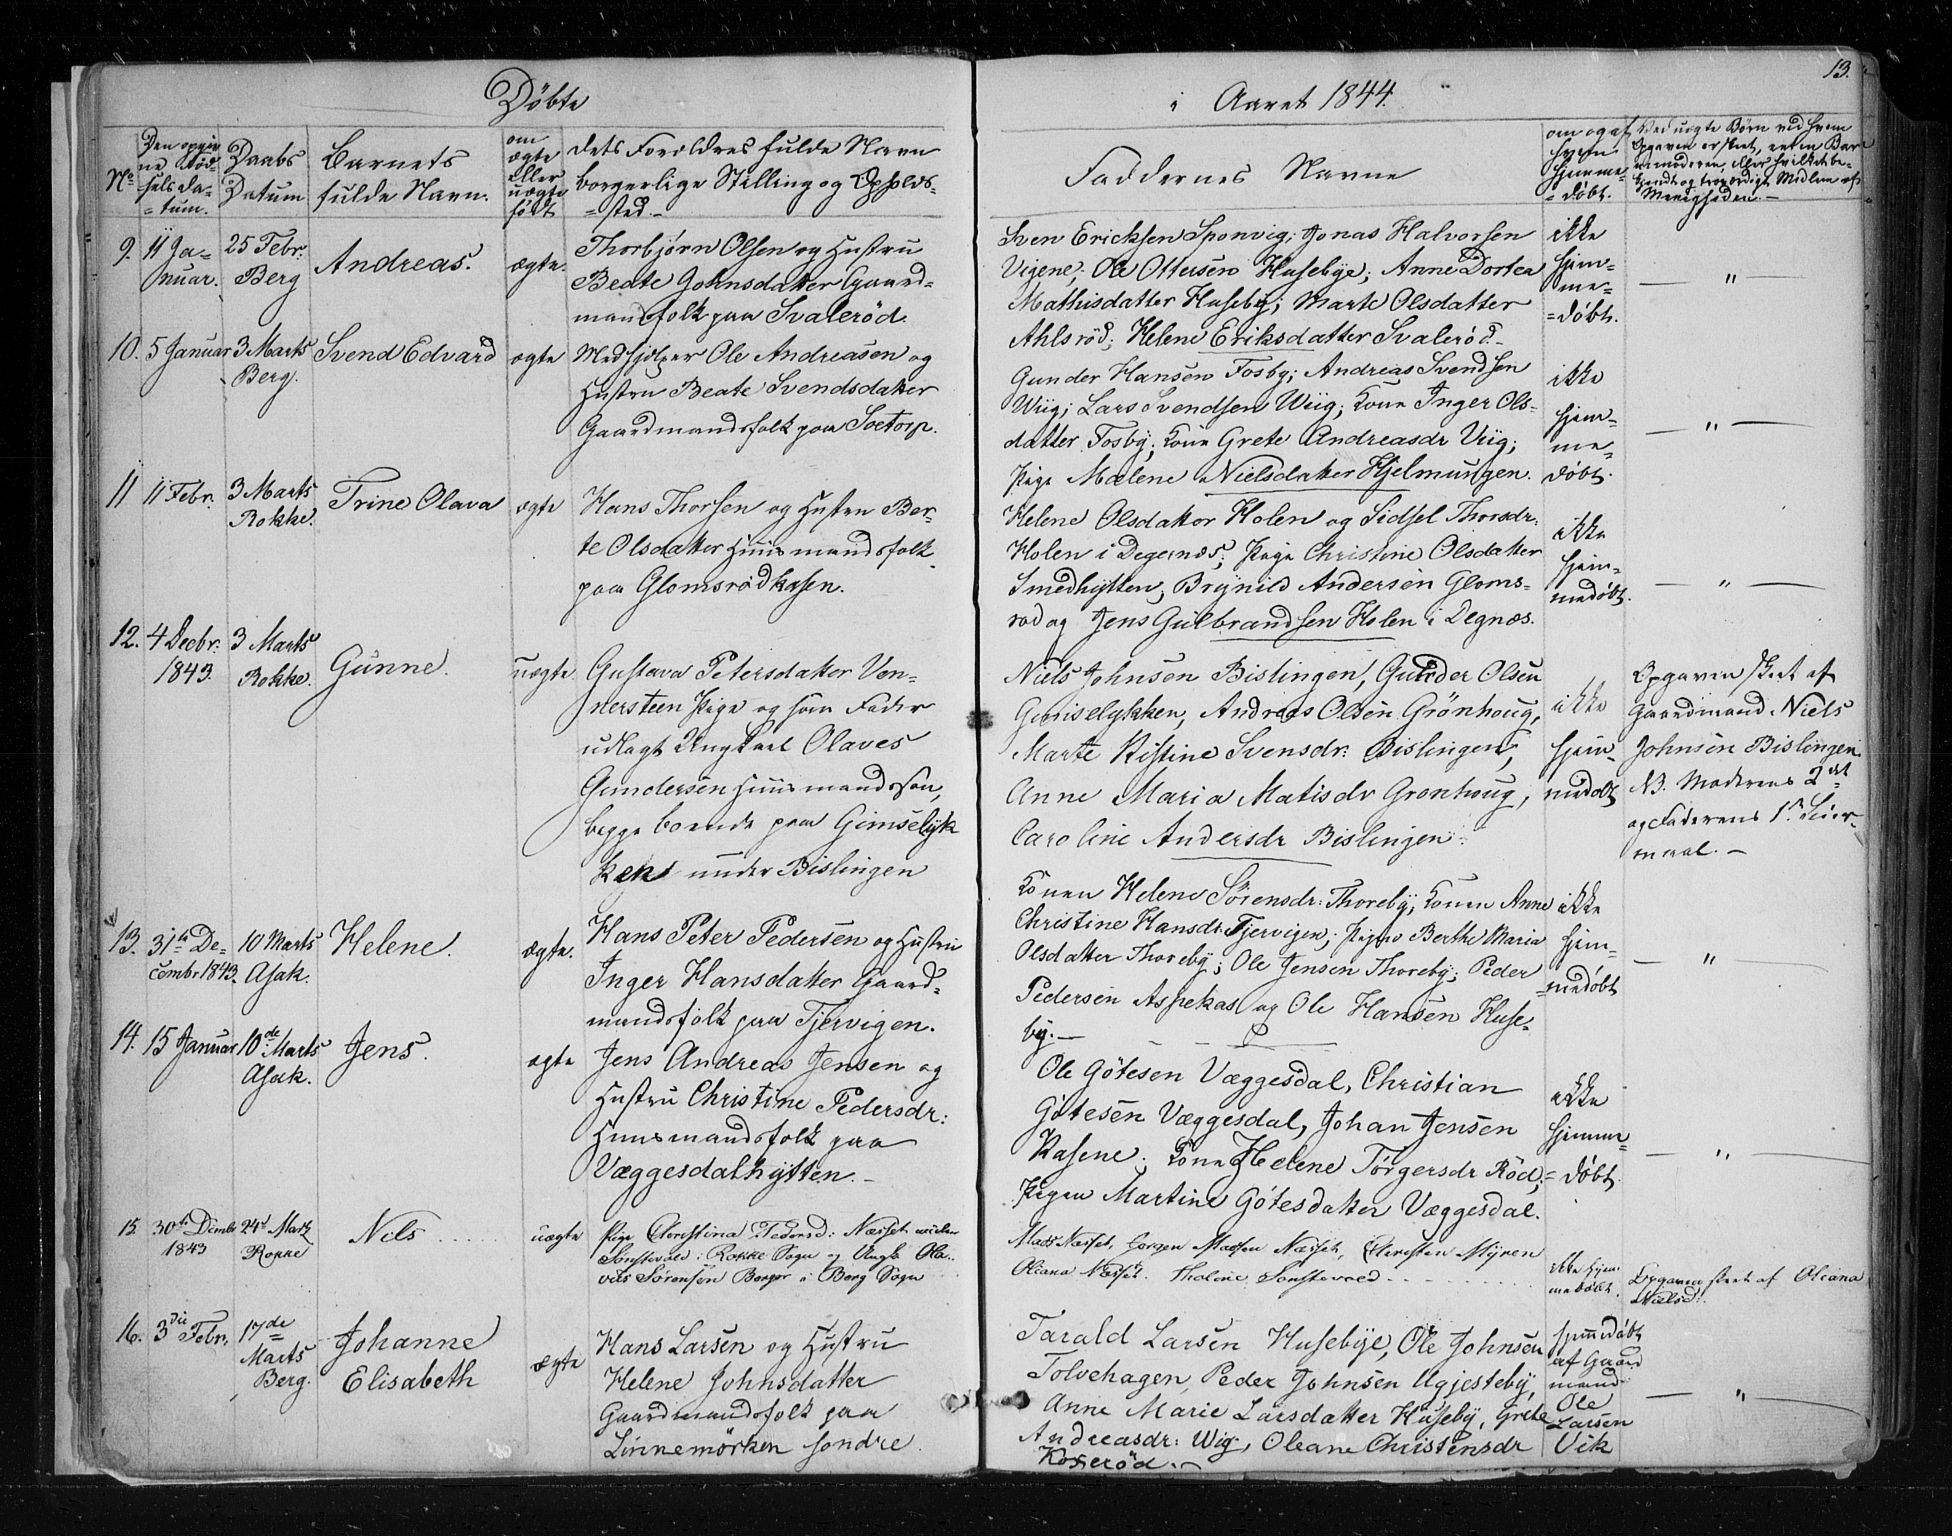 Döbte
i Aaret 1844.
13.
No
Den opgiv
ne Föd-
selsda-
=tum.
Daabs
Datum
Barnets
fulde Navn.
om
ægte
eller
uægte
födt
dets Forældres fulde Navn
borgerlige Stilling og Opholds-
=sted.-
Faddernes Navne
om og af
hvem
hjemme-
=döbt.
Ved uægte Börn ved hvem
Opgaven er skeet, enten Bar
nemoderen, eller hvilket be-
kjendt og troværdigt Medlem af
Menigheden.-
9.
11 Ja-
nuar.
25 Febr.
Berg
Andreas.
ægte.
Thorbjörn Olsen og Hustru
Beate Johnsdatter Gaard=
mandsfolk paa Svaleröd.
Sven Ericksen Sponvig; Jonas Halvorsen
Vigene; Ole Ottersen Husebye; Anne Dortea
Mathisdatter Huseby; Marte Olsdatter
Ahlsröd; Helene Eriksdatter Svaleröd-
ikke
hjem-
me-
=döbt.
— " —
10.
5 Januar
3 Marts
Berg.
Svend Edvard
ægte
Medhjelper Ole Andreasen og
Hustru Beate Svendsdatter
Gaardmandsfolk paa Soetorp.
Gunder Hansen Fosby; Andreas Svendsen
Wiig; Lars Svendsen Wiig; Kone Inger Ols-
datter Fosby; Kone Grete Andreasdr Viig;
Pige Malene Nielsdatter Hjelmungen.
ikke
hjem-
me-
döbt.
— " —
11
11 Febr.
3 Marts
Rokke.
Trine Olava
ægte
Hans Thorsen og Hustru Ber-
te Olsdatter Huusmandsfolk
paa Glomsrödkasen.
Helene Olsdatter Holen og Sidsel Thorsdr:
Holen i Degernæs; Pige Christine Olsdatter
Smedhytten; Brynild Andersen Gloms-
rød og Jens Gulbrandsen Holen i Degnæs.
ikke
hjem-
medöbt.
— " —
12.
4 Decbr:
1843.
3 Marts
Rokke.
Gunne.
uægte
Gustava Petersdatter Ven-
nersteen Pige og som Fader
udlagt Ungkarl Olaves
Gundersen Huusmandssön,
begge boende paa Gimselyk
ken under Bislingen
Niels Johnsen Bislingen, Gunder Olsen
Gimselykken, Andreas Olsen Grönhoug,
Marte Kistine Svensdr: Bislingen,
Anne Maria Matisdr Grønhoug,
Caroline Andersdr Bislingen.
ikke
hjem-
medöbt
Opgaven skeet af
Gaardmand Niels
Johnsen Bislingen
NB. Moderens 2det
og Faderens 1ste Leier-
maal.-
13.
31te De-
cembr 1843.
10 Marts
Asak.
Helene.
ægte.
Hans Peter Pedersen og Hustru
Inger Hansdatter Gaard-
mandsfolk paa Tjervigen.
Konen Helene Sörensdr: Thoreby; Konen Anne
Christine Hansdr: Tjervigen; Pigen Berthe Maria
Olsdatter Thoreby; Ole Jensen Thoreby; Peder
Pedersen Aspekas og Ole Hansen Huse-
by.-
ikke
hjem-
=medöbt
— " —
14.
15 Januar
10de Marts
Asak.
Jens.
ægte
Jens Andreas Jensen og
Hustru Christine Pedersdr:
Huusmandsfolk paa
Væggesdalhytten.-
Ole Götesen Væggesdal, Christian
Götesen Væggesdal, Johan Jensen
Kasene; Kone Helene Törgersdr Röd;
Pigen Martine Götesdatter Væggesdal.
ikke
hjemme-
=döbt.
— " —
15.
30te Dcmbr
1843
24de Marts
Rokke
Nils
uægte
Pige Christina Pedersd: Næsset
Sonstevold i Rokke Sogn og Ungk: Ola-
ves Sörensön Borger i Berg Sogn
Mads Næsset, Jörgen Madsen Næsset, Thersten Myren
Oliana Næsset. Tholine Sonstevold
ikke hjem-
medöbt.
Opgaven skeet af Oliana
Nielsd:
16.
3die Febr.
17de
Marts
Berg.
Johanne
Elisabeth
ægte
Hans Larsen og Hustru
Helene Johnsdatter
Gaardmandsfolk paa
Linnemörken söndre.
Tarald Larsen Husebye, Ole Johnsen
Tolvehagen, Peder Johnsen Ugjesteby,
Anne Marie Larsdatter Huseby, Grete
Andreasdr: Wig, Oleane Christensdr
Koxeröd.-
hjemmedöbt
af Gaard
mand
Ole
Larsen
Vik
— " —